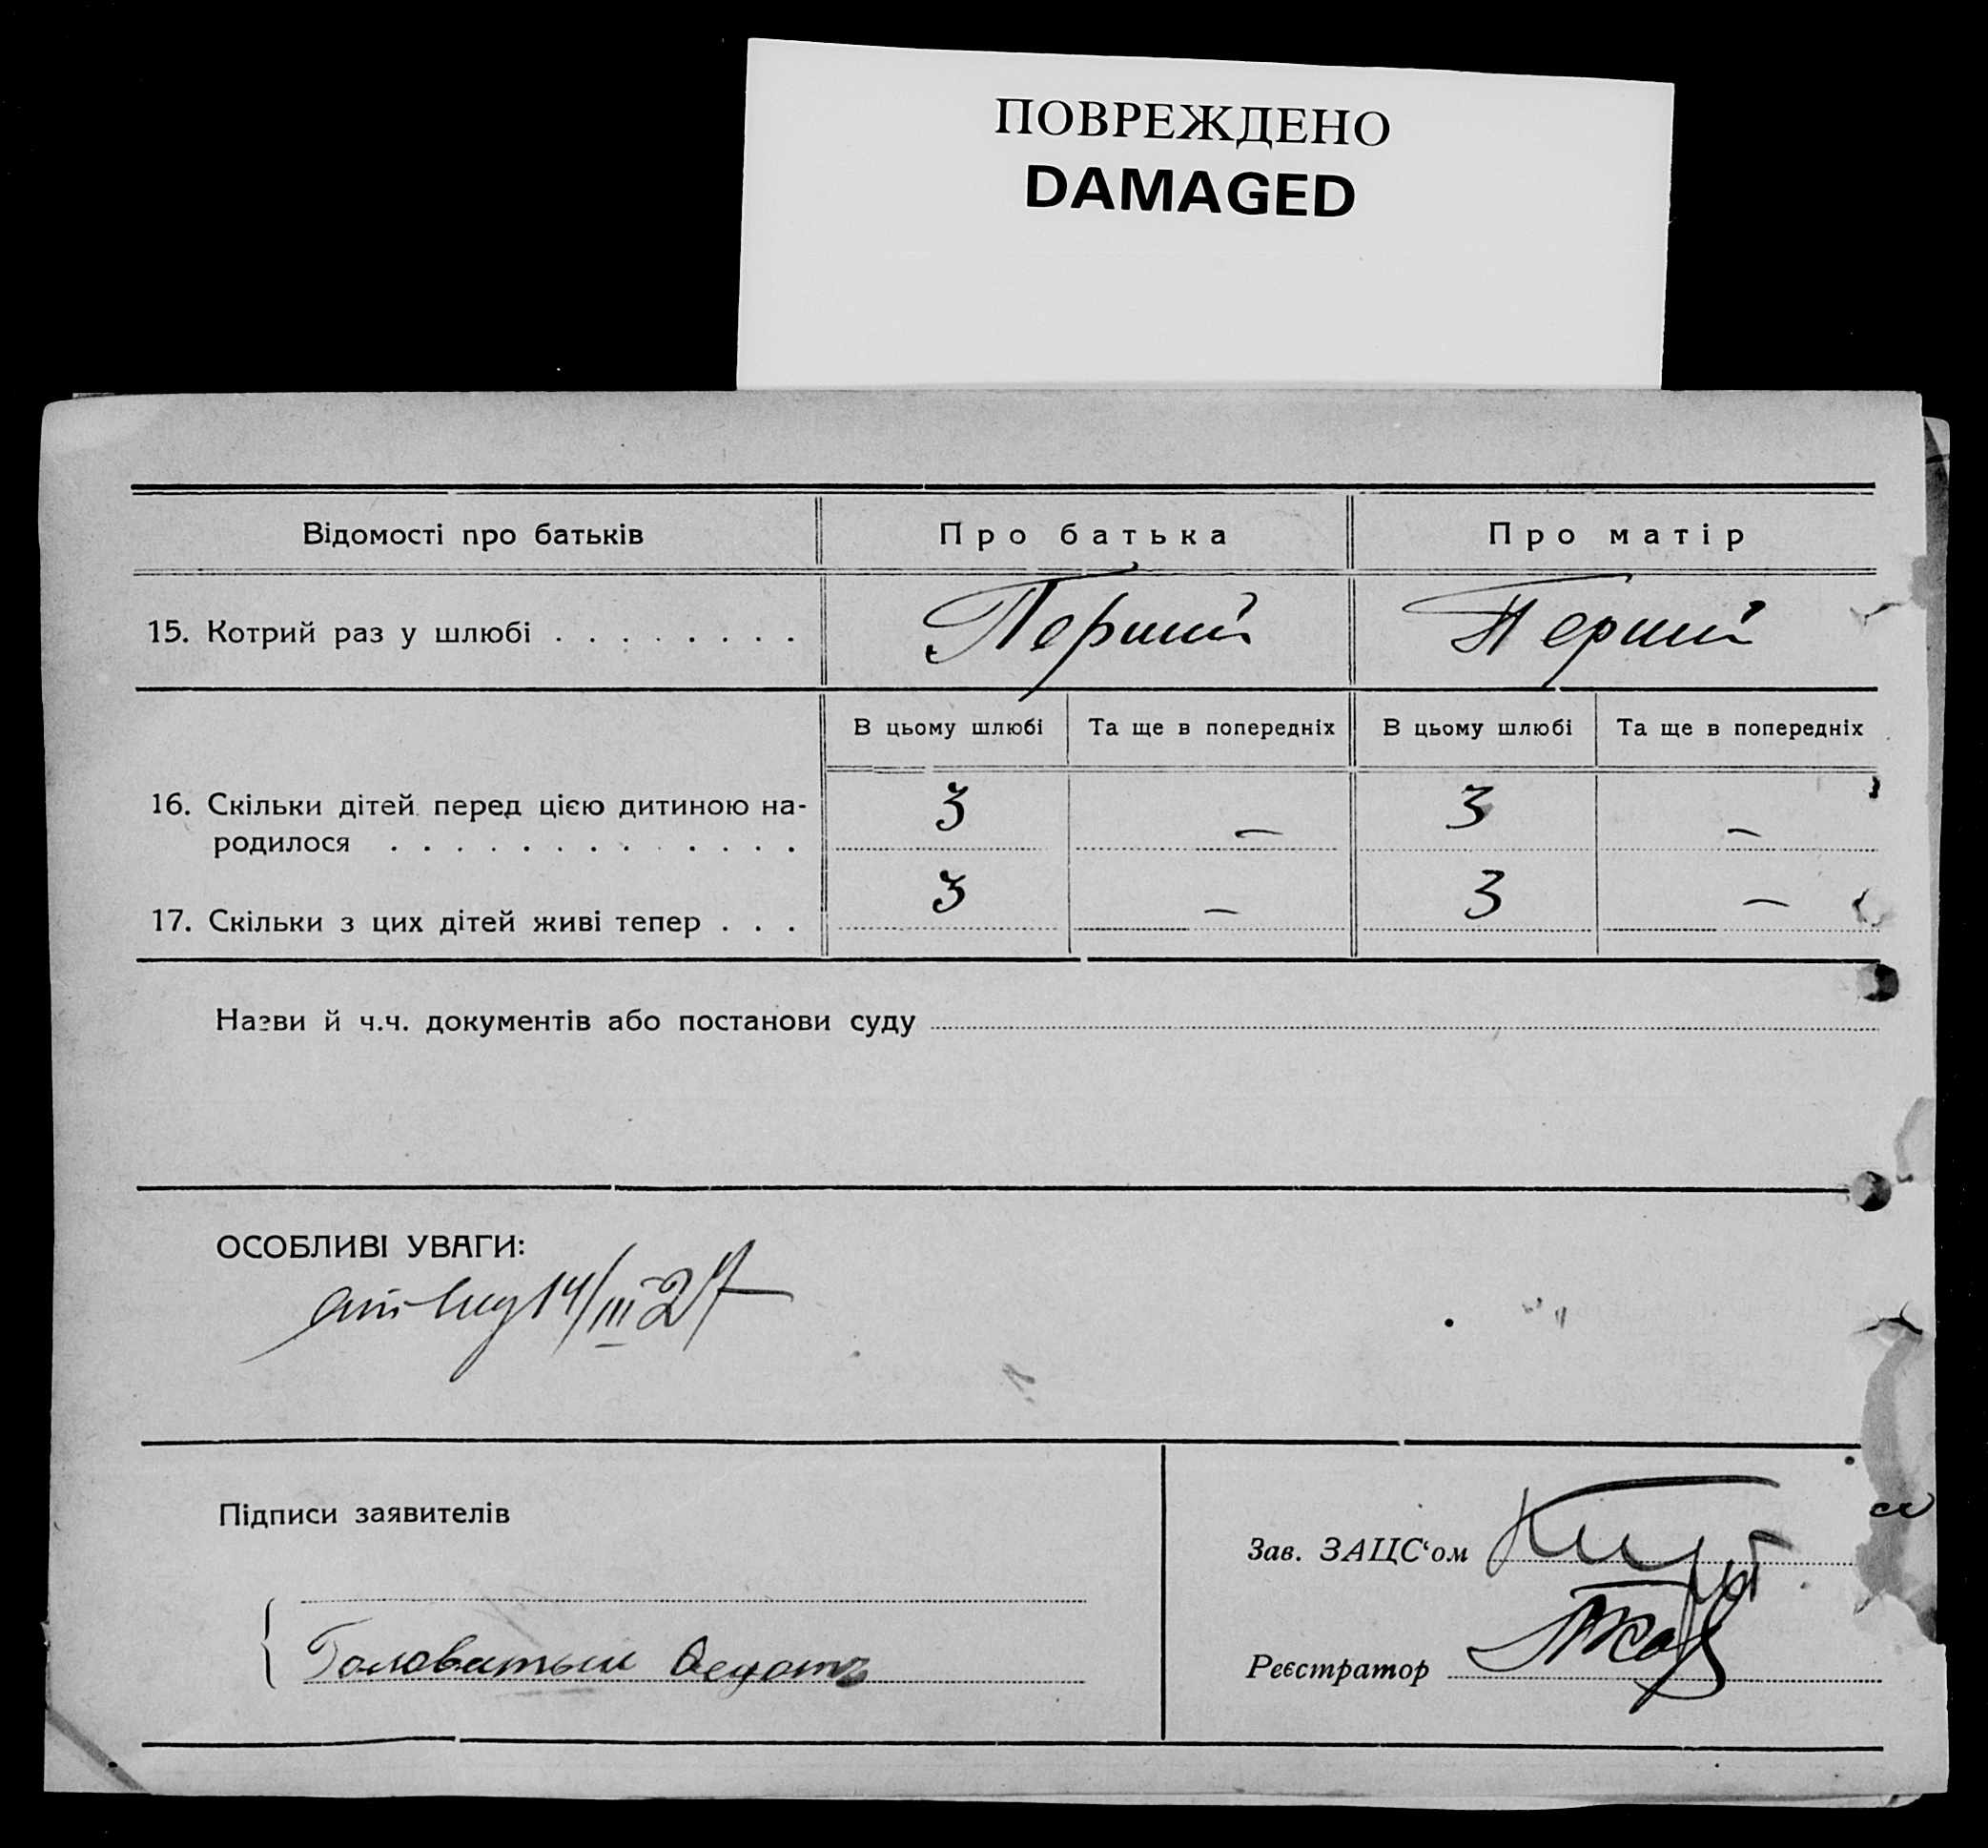 ПОВРЕЖДЕНО
DAMAGED
Відомості про батьків
Про батька
Про матір
15. Котрий раз у шлюбі . . . . . . . .
Перший
Перший
В цьому шлюбі
Та ще в попередніх
В цьому шлюбі
Та ще в попередніх
16. Скільки дітей перед цією дитиною на-
родилося . . . . . . . . . . . . .
3
—
3
—
17. Скільки з цих дітей живі тепер . . .
3
—
3
—
Назви й ч.ч. документів або постанови суду
ОСОБЛИВІ УВАГИ:
14/III 27
Підписи заявителів
Зав. ЗАЦС‘ом
Головатый Федотъ
Реєстратор